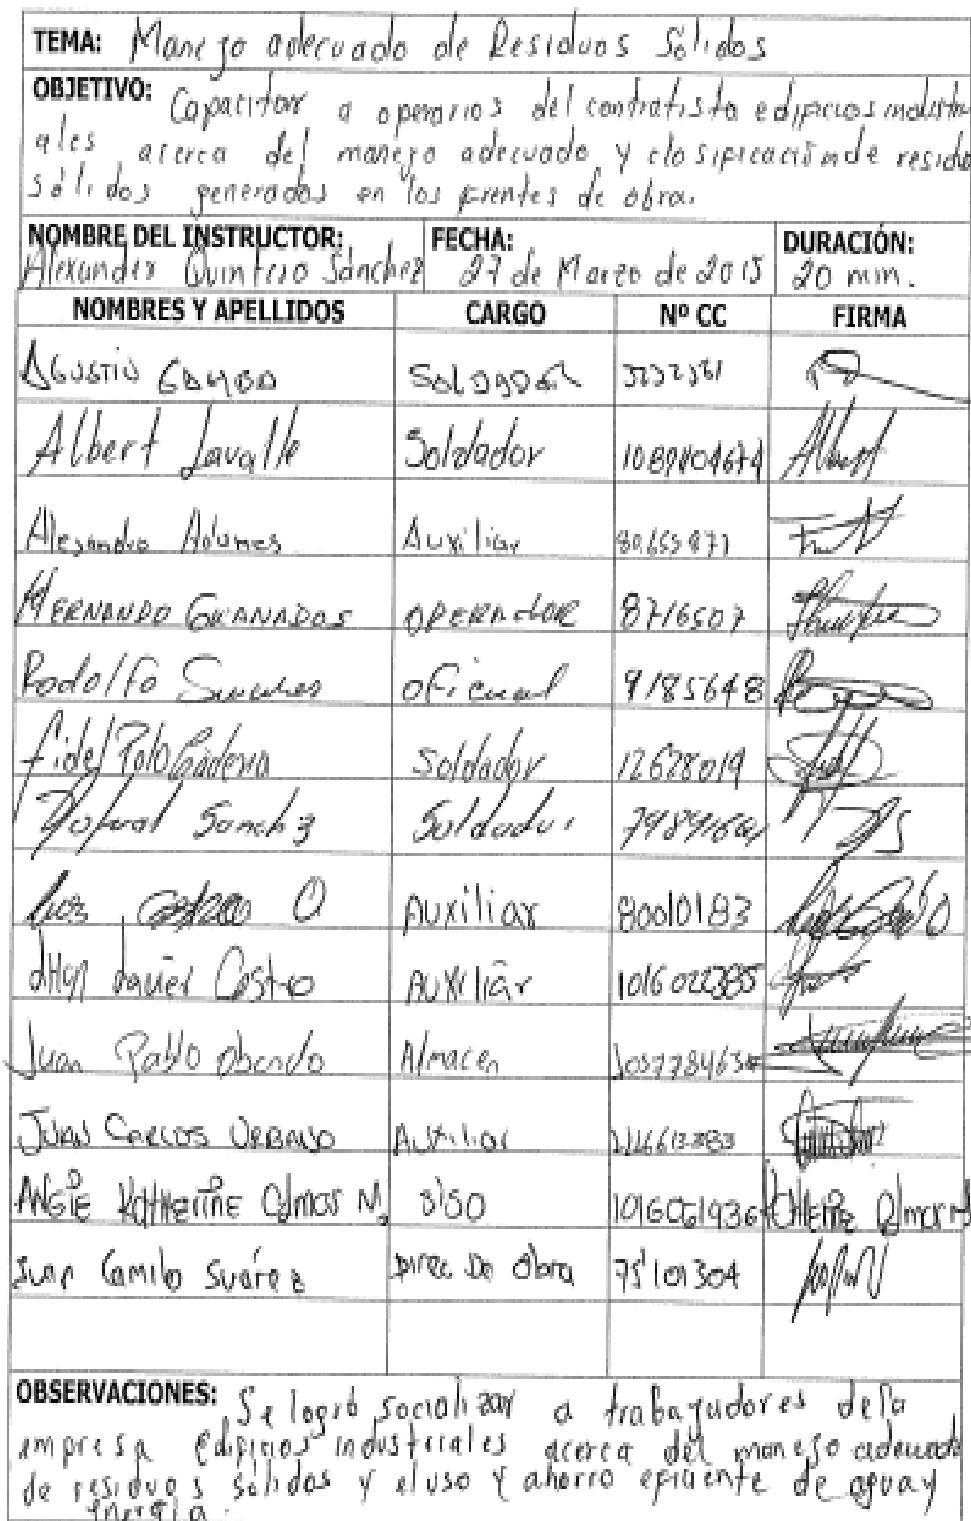 TEMA: Manejo adecuado de Residuos Sólidos
OBJETIVO: Capacitar a operarios del contratista edificios industri
ales acerca del manejo adecuado y clasificación de residuo
sólidos generados en los frentes de obra.
NOMBRE DEL INSTRUCTOR: FECHA: DURACIÓN:
Alexander Quintero Sánchez 27 de Marzo de 2015 20 min.
NOMBRES Y APELLIDOS CARGO Nº CC FIRMA
AGUSTIN SOLDADOR
Albert Lavalle Soldador Albert
Alejandro Auxiliar
HERNANDO GRANADOS OPERADOR 8716507
Rodolfo oficial 9185648
Fidel Polo Cadena Soldador 12628019
Sanchez Soldador
Luis O Auxiliar 80010183
Castro Auxiliar
Juan Pablo Obando Almacen
JUAN CARLOS URBANO Auxiliar
ANGIE KATHERINE Olmos M. SISO 1016061936
Juan Camilo Suárez Direc De Obra 75101304
OBSERVACIONES: Se logró socializar a trabajadores de la
empresa edificios industriales acerca del manejo adecuado
de residuos sólidos y el uso y ahorro eficiente de agua y
energía.